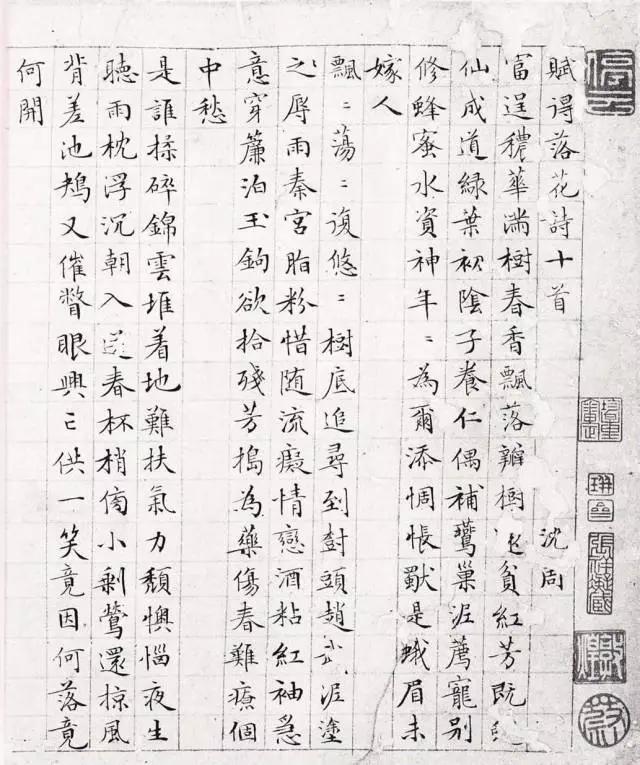 賦得落花詩十首　沈周
富逞穠華滿樹春香飄落瓣樹貧紅芳既
仙成道綠葉初陰子養仁偶補鶯巢泥薦寵別
修蜂蜜水資神年〻為爾添惆悵獸是蛾眉未
嫁人
飄〻蕩〻復悠〻樹底追尋到樹頭趙武泥塗
之辱雨秦宮脂粉惜随流癡情戀酒粘紅袖急
意穿簾泊玉鉤欲拾殘芳搗為藥傷春難療個
中愁
是誰揉碎錦雲堆着地難扶氣力頹懊惱夜生
聽雨枕浮沉朝入送春杯梢傍小剩鶯還掠風
背差池鴂又催瞥眼興亡供一笑竟因何落竟
何開